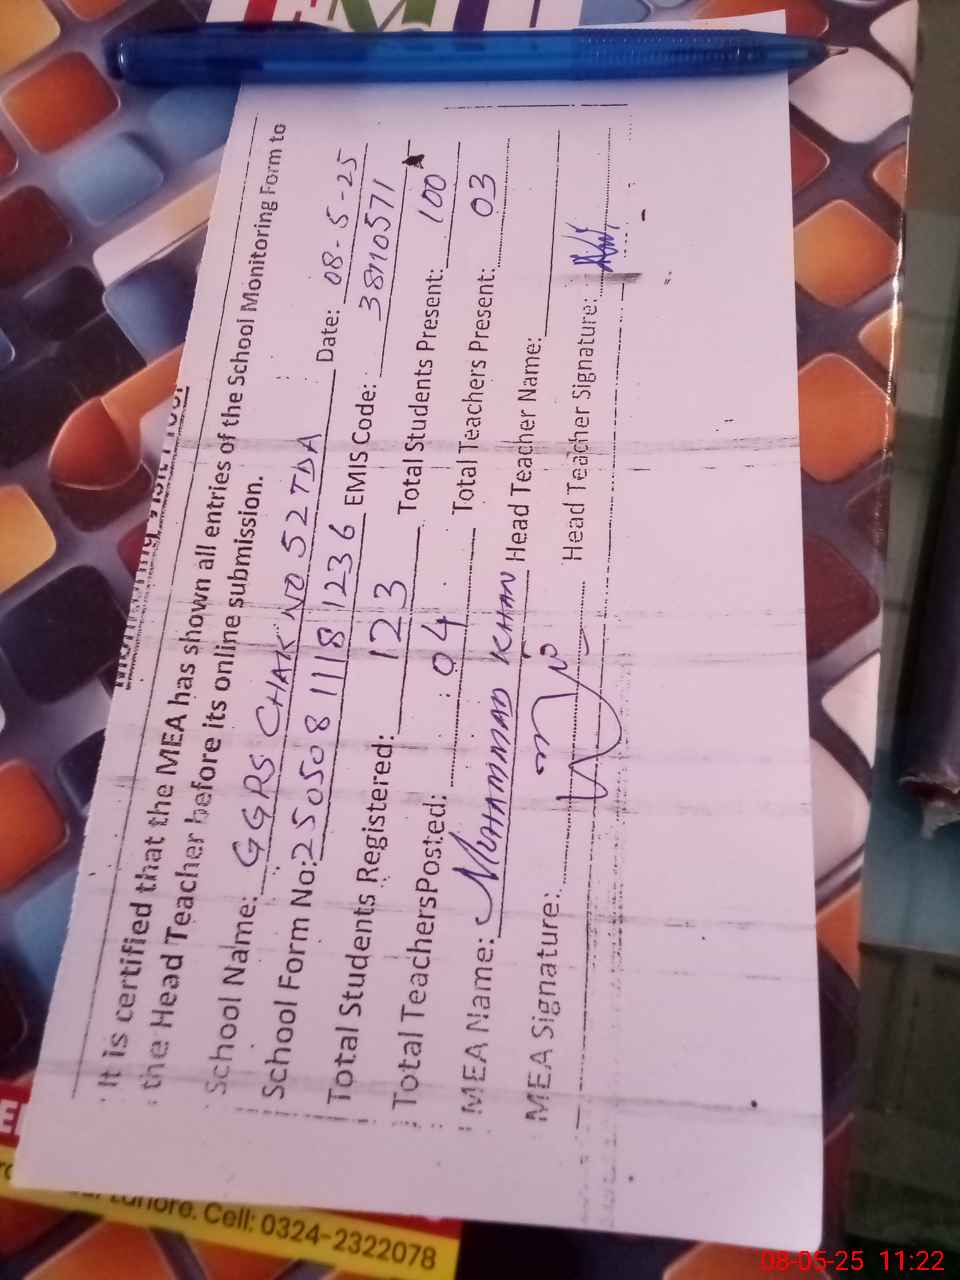 Monitoring Visit Proof
It is certified that the MEA has shown all entries of the School Monitoring Form to
the Head Teacher before its online submission.
School Name: GGPS CHAK NO 52 TDA Date: 08-5-25
School Form No: 25050811181236 EMIS Code: 38110571
Total Students Registered: 123 Total Students Present: 100
Total TeachersPosted: 04 Total Teachers Present: 03
MEA Name: MUHAMMAD KHAN Head Teacher Name:
MEA Signature: Head Teacher Signature:
Lahore. Cell: 0324-2322078
08-05-25 11:22